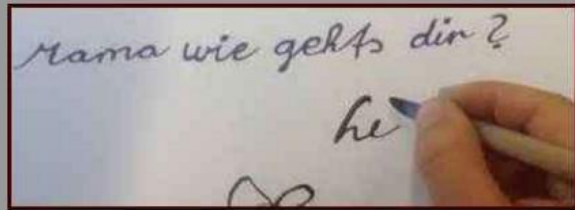 Mama wie gehts dir?
he